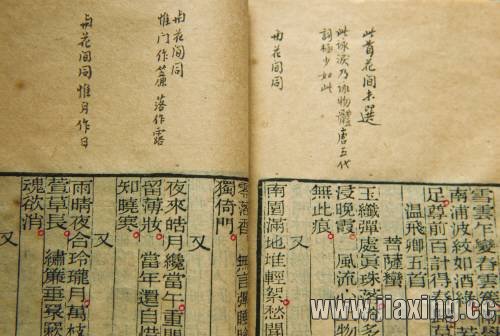 此首花间未選
此咏淚乃咏物體唐五代
詞极少如此
与花间同
雪雲乍變春雲簇
南浦波紋如酒
足尊前百計得
温飛卿五首
菩薩蠻
玉纖彈處眞珠落
浸晚霞 風流
無此痕
又
南園滿地堆輕絮愁聞
与花间同
惟门作簾 落作露
与花间同惟月作日
零落香 無言
獨倚門
又
夜來皓月纔當午重門
留薄妝 當年還自惜
知曉寒
又
雨晴夜合玲瓏月萬枝
萱草長 繡簾垂
魂欲消
又
www.jiaxing.cc